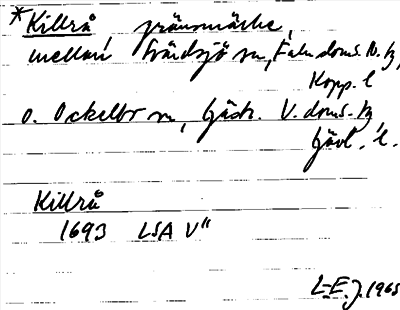 *Killrå, gränsmärke,
mellan Svärdsjö sn, Falu doms. N. tg,
Kopp. l
o. Ockelbo sn, Gästr. V. doms. tg,
Gävl. l.
Killrå
1693 LSA V"
L-E. J. 1965